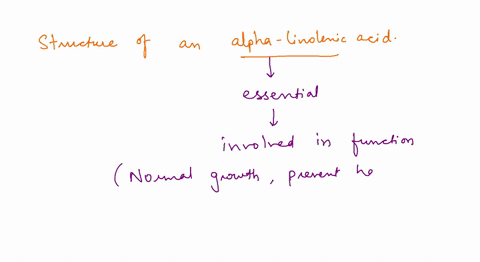 Structure of an alpha-linolenic acid.
essential
involved in function
(Normal growth, prevent he